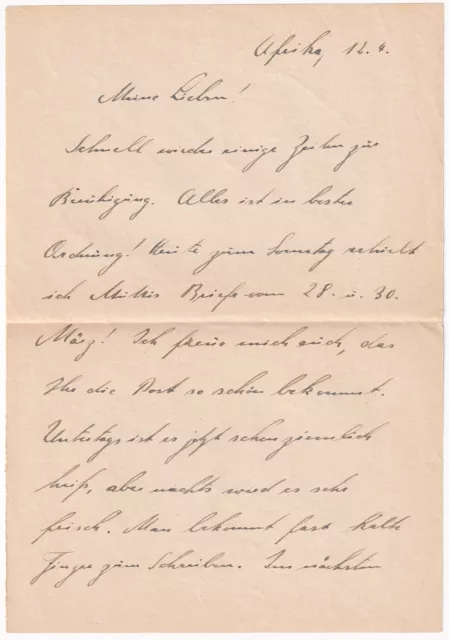 Afrika, 12.4.
Meine Lieben!
Schnell wieder einige Zeilen zur
Beruhigung. Alles ist in bester
Ordnung! Heute zum Sonntag erhielt
ich Muttis Briefe vom 28. u. 30.
März! Ich freue mich auch, das
Ihr die Post so schön bekommt.
Untertags ist es jetzt schon ziemlich
heiß, aber nachts wird es sehr
frisch. Man bekommt fast kalte
Finger zum Schreiben. Im nächsten